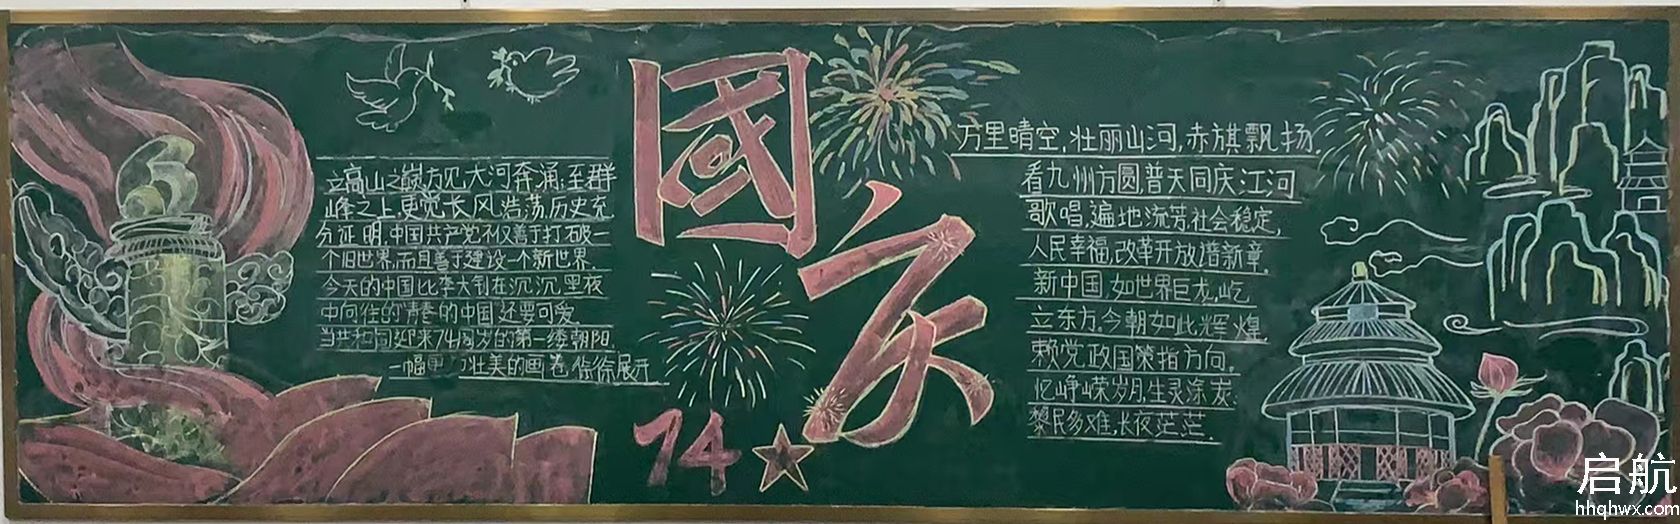 立高山之巅,方见大河奔涌;至群
峰之上,更觉长风浩荡.历史充
分证明,中国共产党不仅善于打破一
个旧世界,而且善于建设一个新世界.
今天的中国比李大钊在沉沉黑夜
中向往的青春的中国还要可爱.
当共和国迎来74周岁的第一缕朝阳,
一幅更 壮美的画卷徐徐展开
國庆
74
万里晴空,壮丽山河,赤旗飘扬.
看九州方圆,普天同庆,江河
歌唱,遍地流芳.社会稳定,
人民幸福,改革开放谱新章.
新中国,如世界巨龙,屹
立东方。今朝如此辉煌,
赖党政国策指方向。
忆峥嵘岁月,生灵涂炭;
黎民多难,长夜茫茫.
启航
hhqhwx.com